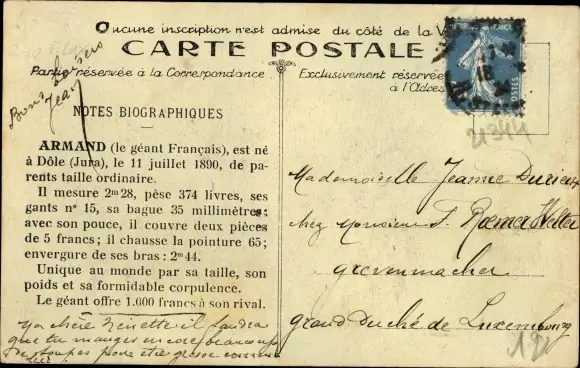 Aucune inscription n'est admise du côté de la V
CARTE POSTALE
Partie réservée à la Correspondance
Exclusivement réservée
à l'Adres
POSTES
21344
Bons baisers
Jean
NOTES BIOGRAPHIQUES
ARMAND (le géant Français), est né
à Dôle (Jura), le 11 juillet 1890, de pa-
rents taille ordinaire.
Il mesure 2m28, pèse 374 livres, ses
gants n° 15, sa bague 35 millimètres;
avec son pouce, il couvre deux pièces
de 5 francs; il chausse la pointure 65;
envergure de ses bras : 2m44.
Unique au monde par sa taille, son
poids et sa formidable corpulence.
Le géant offre 1.000 francs à son rival.
Ma chère Ninette il faudra
que tu manges encore beaucoup
de soupes pour être grosse comme
lui
Mademoiselle Jeanne
chez Monsieur F. Roemer Welter
Grevenmacher
Grand Duché de Luxembourg